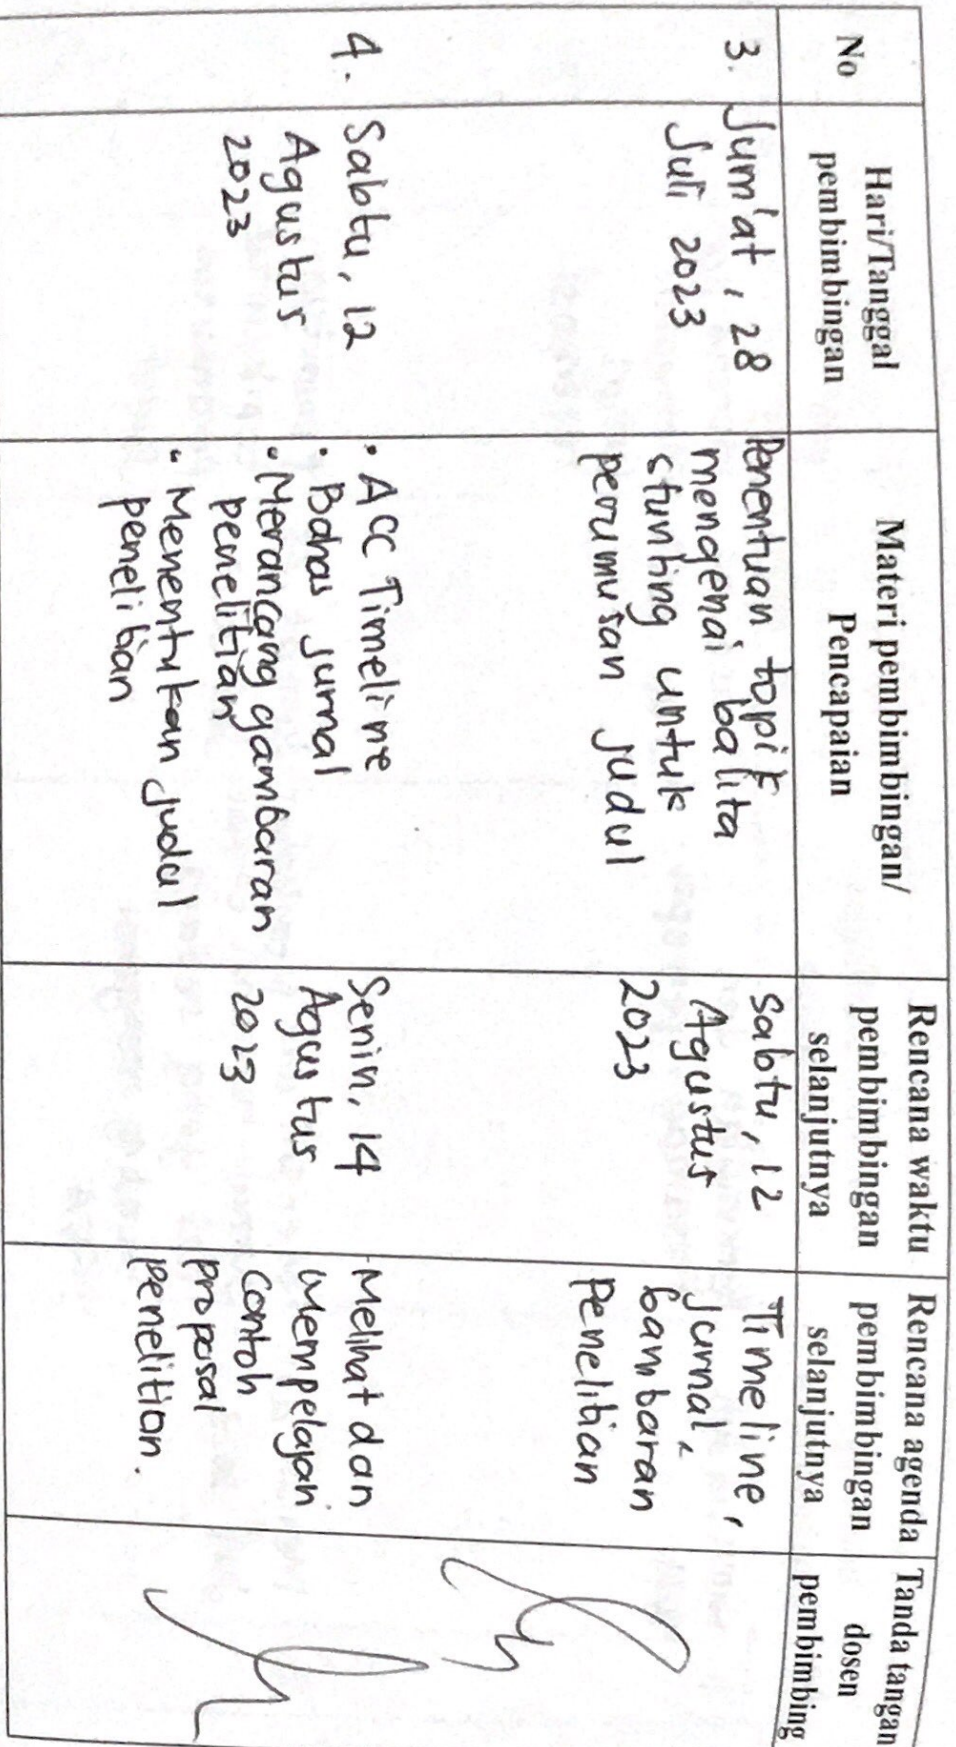 No
Hari/Tanggal
pembimbingan
Materi pembimbingan/
Pencapaian
Rencana waktu
pembimbingan
selanjutnya
Rencana agenda
pembimbingan
selanjutnya
Tanda tangan
dosen
pembimbing
3.
Jum'at, 28
Juli 2023
Penentuan topik
mengenai balita
stunting untuk
perumusan judul
Sabtu, 12
Agustus
2023
Timeline,
jurnal,
Gambaran
Penelitian
4.
Sabtu, 12
Agustus
2023
• ACC Timeline
• Bahas jurnal
• Merancang gambaran
penelitian
• Menentukan judul
penelitian
Senin, 14
Agustus
2023
- Melihat dan
Mempelajari
Contoh
proposal
penelitian.